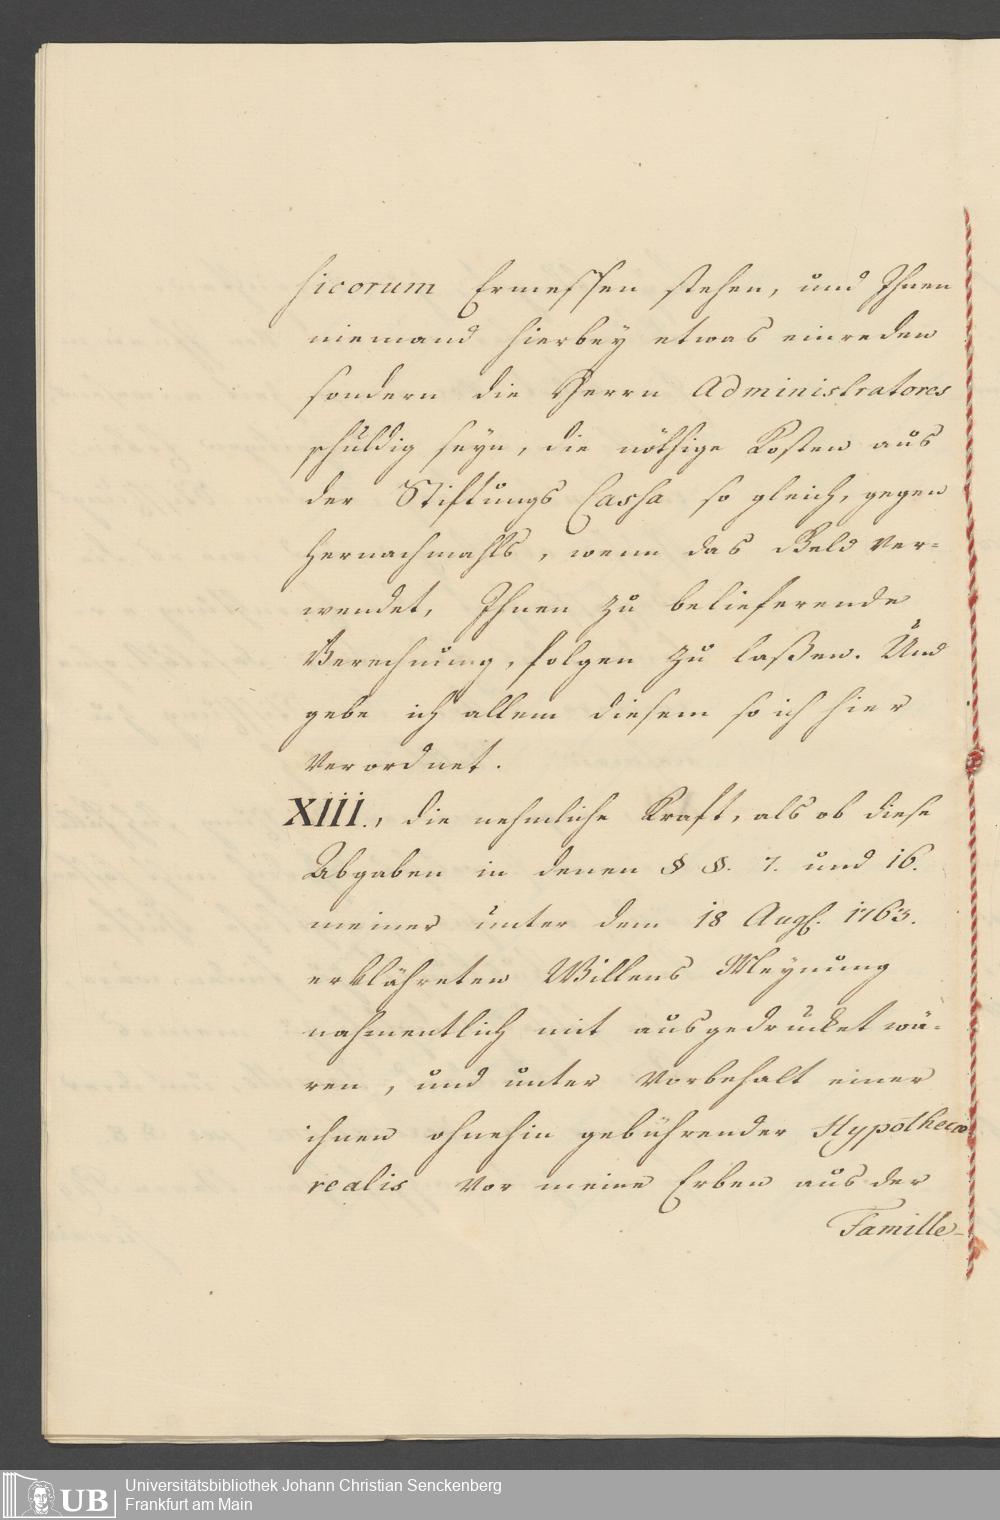 sicorum Ermessen stehen, und Ihnen
niemand hierbey etwas einreden
sondern die Herrn Administratores
schuldig seyn, die nöthige Kosten aus
der Stiftungs Cassa so gleich, gegen
hernachmahls, wenn das Geld ver-
wendet, Ihnen zu belieferende
Berechnung, folgen zu laßen. Und
gebe ich allem diesem so ich hier
verordnet.
XIII., die nehmliche Kraft, als ob diese
Abgaben in denen § §. 7. und 16.
meiner unter dem 18 Augs. 1763.
erklährten Willens Meynung
nahmentlich mit ausgedrucket wä-
ren, und unter Vorbehalt einer
ihnen ohnehin gebührender Hypothecæ
realis vor meine Erben aus der
Famille-
UB
Universitätsbibliothek Johann Christian Senckenberg
Frankfurt am Main